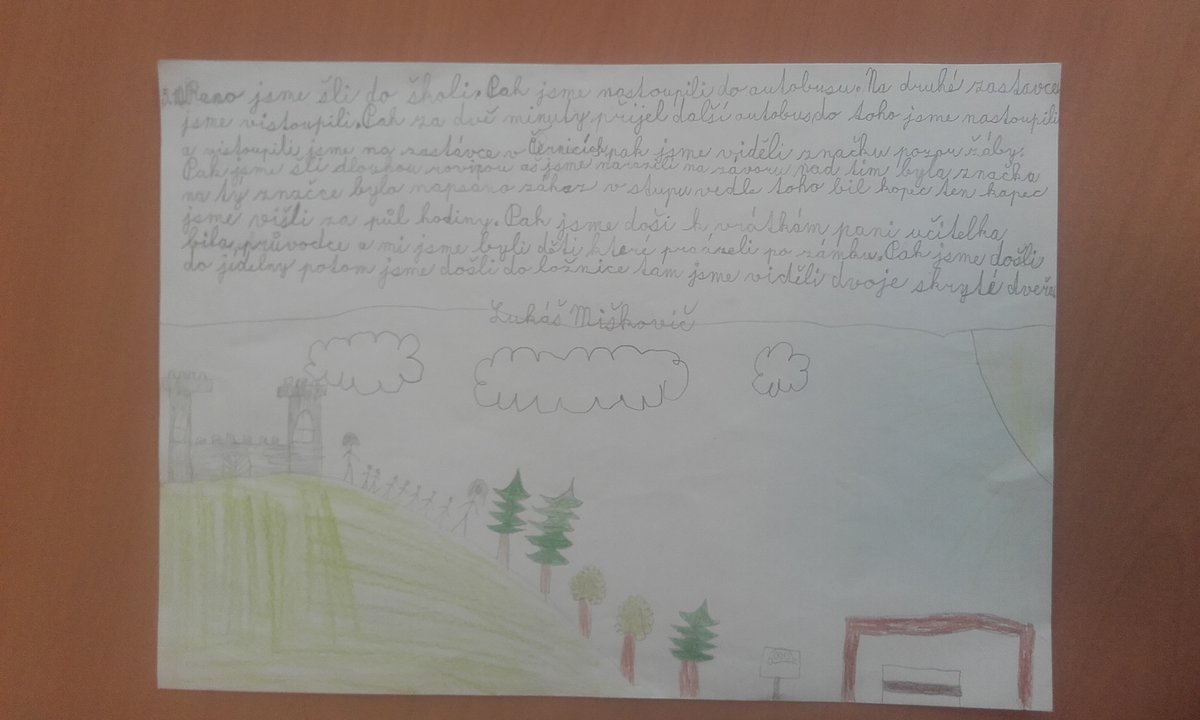 Rano jsme šli do školi. Pak jsme nastoupili do autobusu. Na druhé zastavce
jsme vistoupili. Pak za dvě minuty přijel další autobus, do toho jsme nastoupili
a vistoupili jsme na zastávce v Černicích, pak jsme viděli značku pozor žáby.
Pak jsme šli dlouhou rovinou aš jsme narazeli na závoru nad tim byla značka
na ty značce bylo napsáno zákaz v stupu vedle toho bil kopec ten kapec
jsme višli za půl hodiny. Pak jsme doši k vrátkám pani učitelka
bila průvodce a mi jsme byli děti které prárzeli po zámku. Pak jsme došli
do jídelny potom jsme došli do ložnice tam jsme viděli dvoje skryté dveře
Lukáš Miškovič